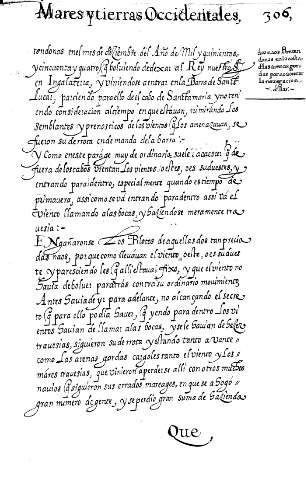 Mares y tierras Occidentales, 306,
tendonas en el mes de diziembre del Año de Mil y quinientos,
y cincuenta y quatro q bolviendo de dexar al Rey nuestro s
en Ingalaterra, y viniendose a entrar en la Barra de Sanct
Lucar, partiendo para ello del cabo de Sanctamaria y no ten
iendo consideracion al tiempo en que estavan, ni mirando los
semblantes y pronosticos de los vientos q los amenazavan, se
fueron su derrota en demanda de la barra:
y Como en este parage muy de ordinario suele acaescer q de
fuera de los cabos vientan los vientos oestes, oes suduestes, y
entrando para identro, especialmente quando es tiempo de
primavera, assi como se va entrando para dentro assi va el
viento llamando a las bocas, y haziendose meramente tra
vesia:
Engañaronse Los Pilotos de aquellas dos tan precia
das naos, porque como llevavan el viento, oeste, oes sudues
te y paresciendoles q alli estava fixo, y que el viento no
havia de bolver para tras contra su ordinario movimiento
Antes havia de yr para adelante, no alcançando el secre
to q para ello podia haver, q yendo para dentro Los vi
entos havian de llamar a las bocas, y se le havian de hazer
travesias, siguieron su derrota y estando tanto a vante
como Los arenas gordas cargoles tanto el viento y Los
mares travesias, que vinieron a perderse alli con otros muchos
navios q siguieron sus errados mareages, en que se ahogo
gran numero de gente, y se perdio gran suma de hazienda
Que